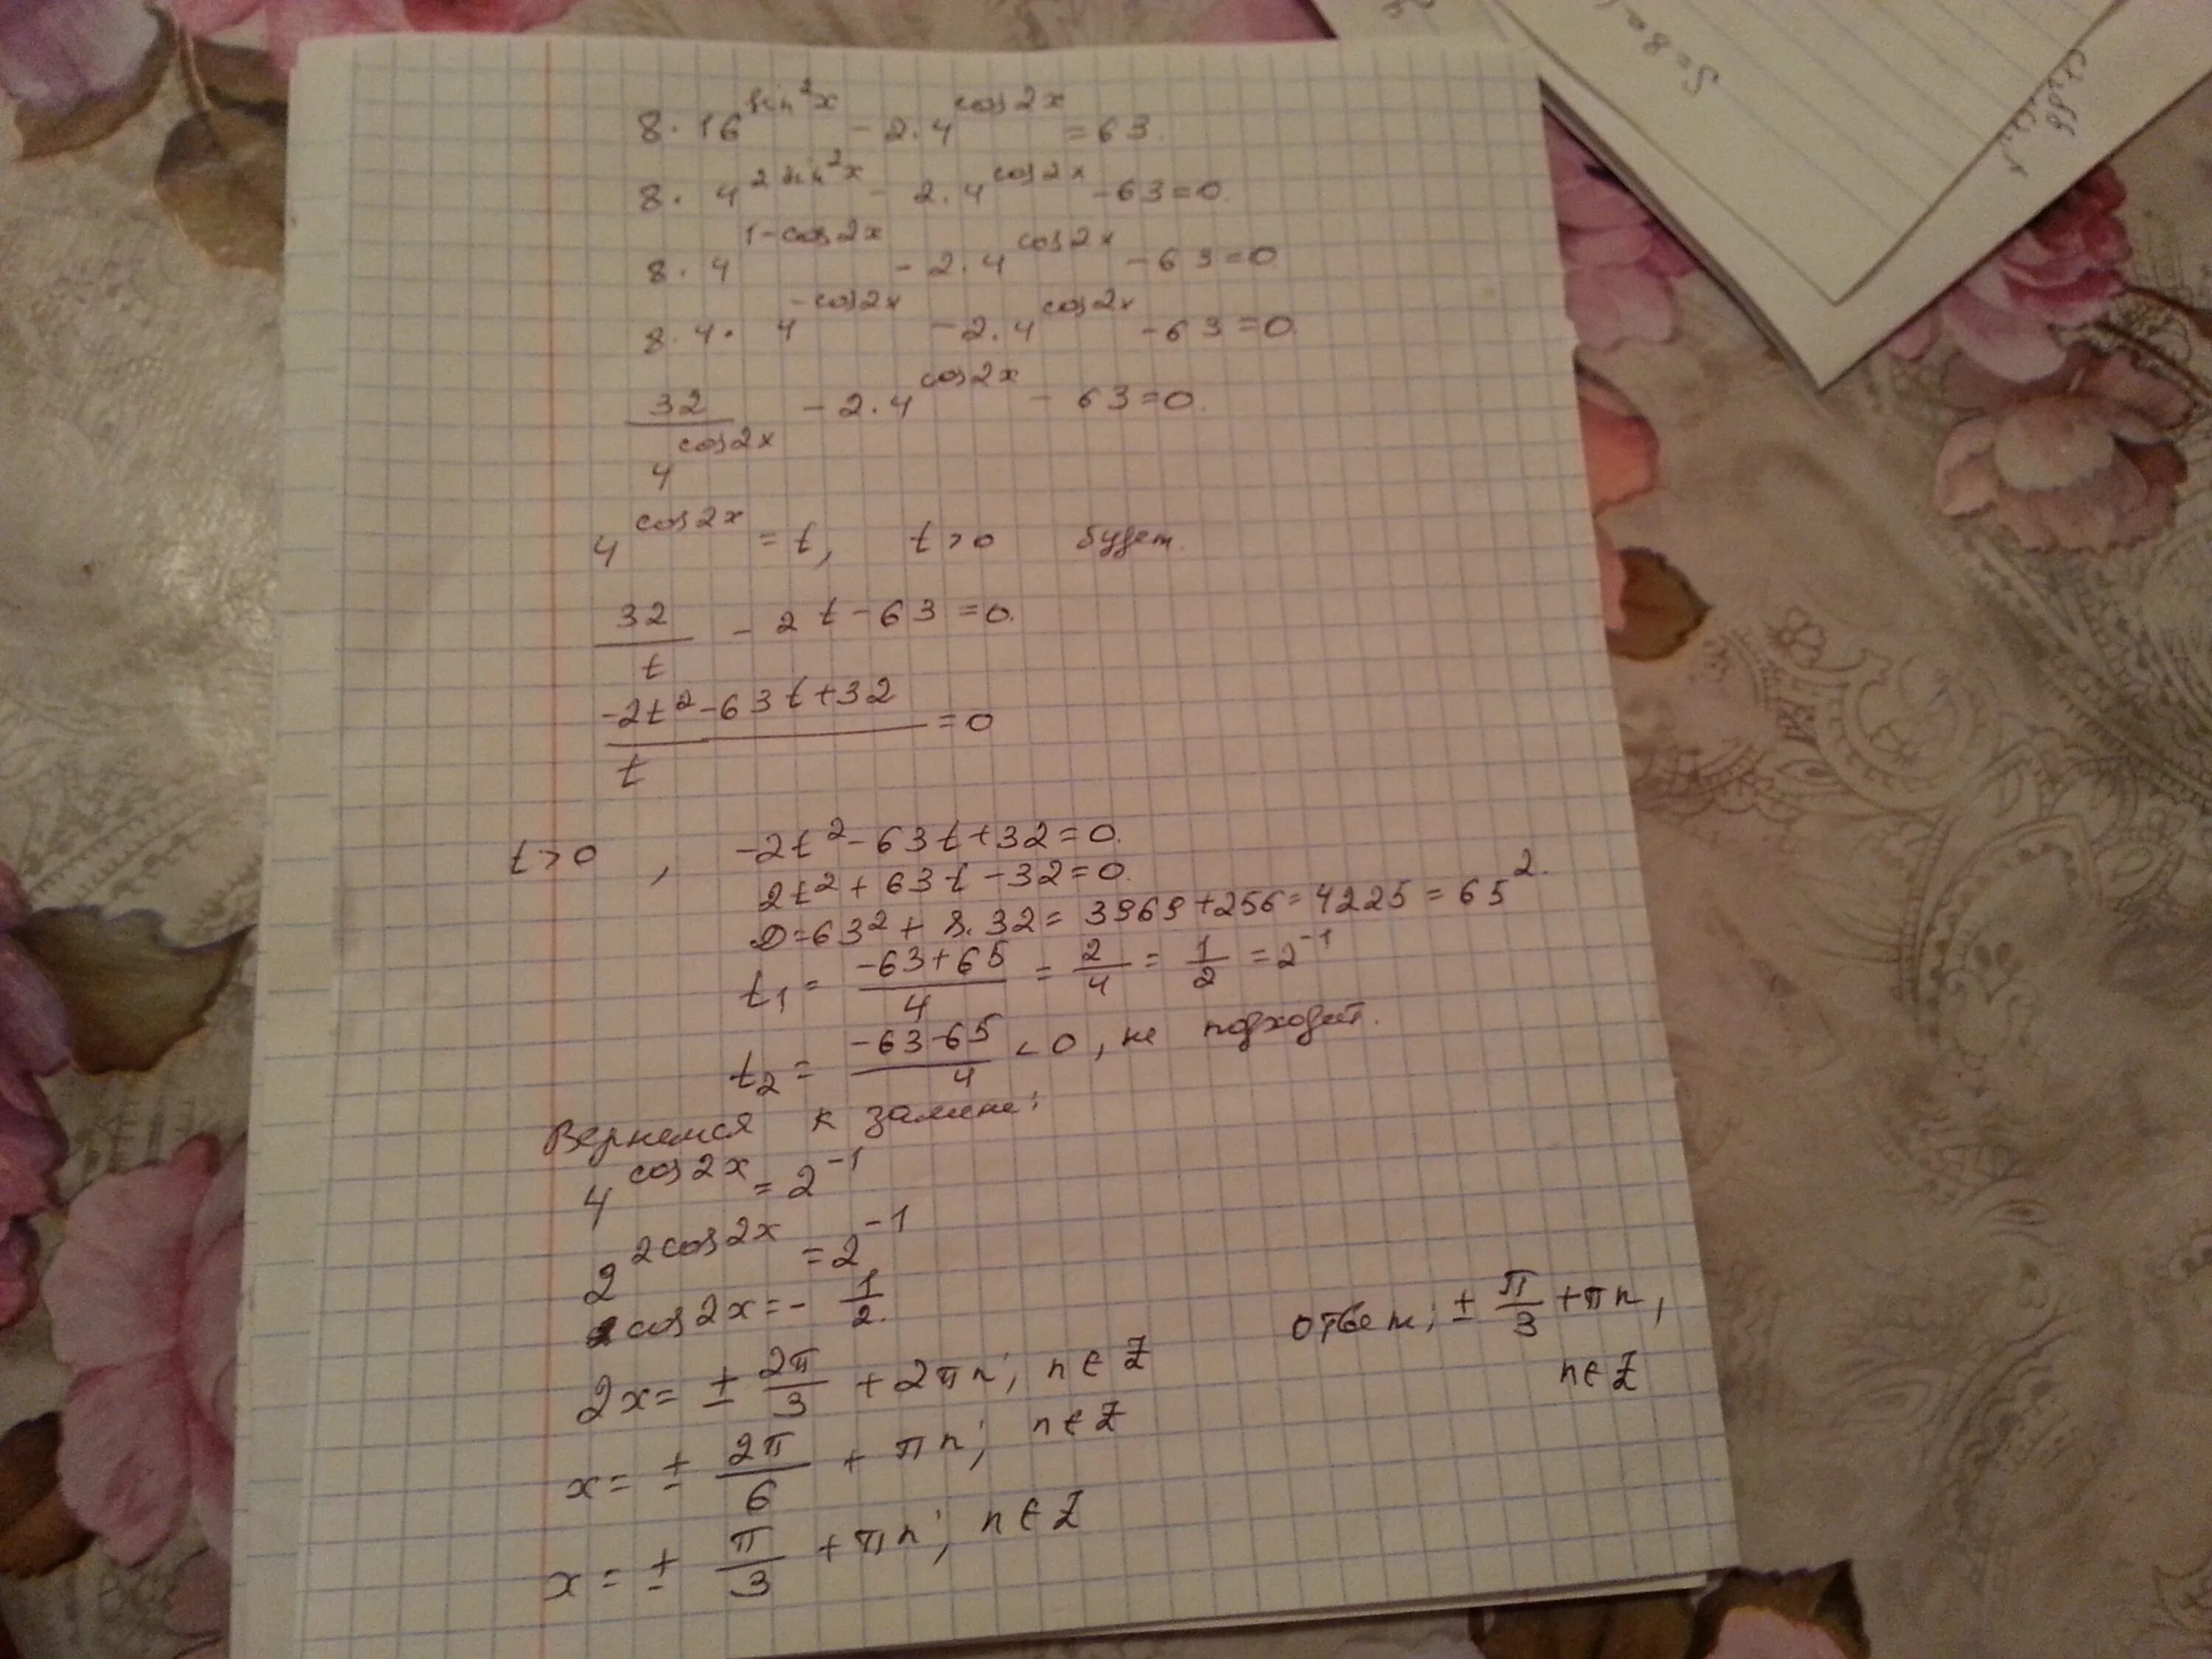 8·16^(sin²x) - 2·4^(cos2x) = 63.
8·4^(2sin²x) - 2·4^(cos2x) - 63 = 0.
8·4^(1-cos2x) - 2·4^(cos2x) - 63 = 0
8·4·4^(-cos2x) - 2·4^(cos2x) - 63 = 0.
32/4^(cos2x) - 2·4^(cos2x) - 63 = 0.
4^(cos2x) = t, t > 0 будет.
32/t - 2t - 63 = 0.
(-2t² - 63t + 32)/t = 0
t > 0, -2t² - 63t + 32 = 0.
2t² + 63t - 32 = 0.
D = 63² + 8·32 = 3969 + 256 = 4225 = 65².
t₁ = (-63+65)/4 = 2/4 = 1/2 = 2⁻¹
t₂ = (-63-65)/4 < 0, не подходит.
Вернемся к замене:
4^(cos2x) = 2⁻¹
2^(2cos2x) = 2⁻¹
cos2x = - 1/2.
2x = ± 2π/3 + 2πn; n ∈ Z
x = ± 2π/6 + πn; n ∈ Z
x = ± π/3 + πn; n ∈ Z
ответ: ± π/3 + πn,
n ∈ Z